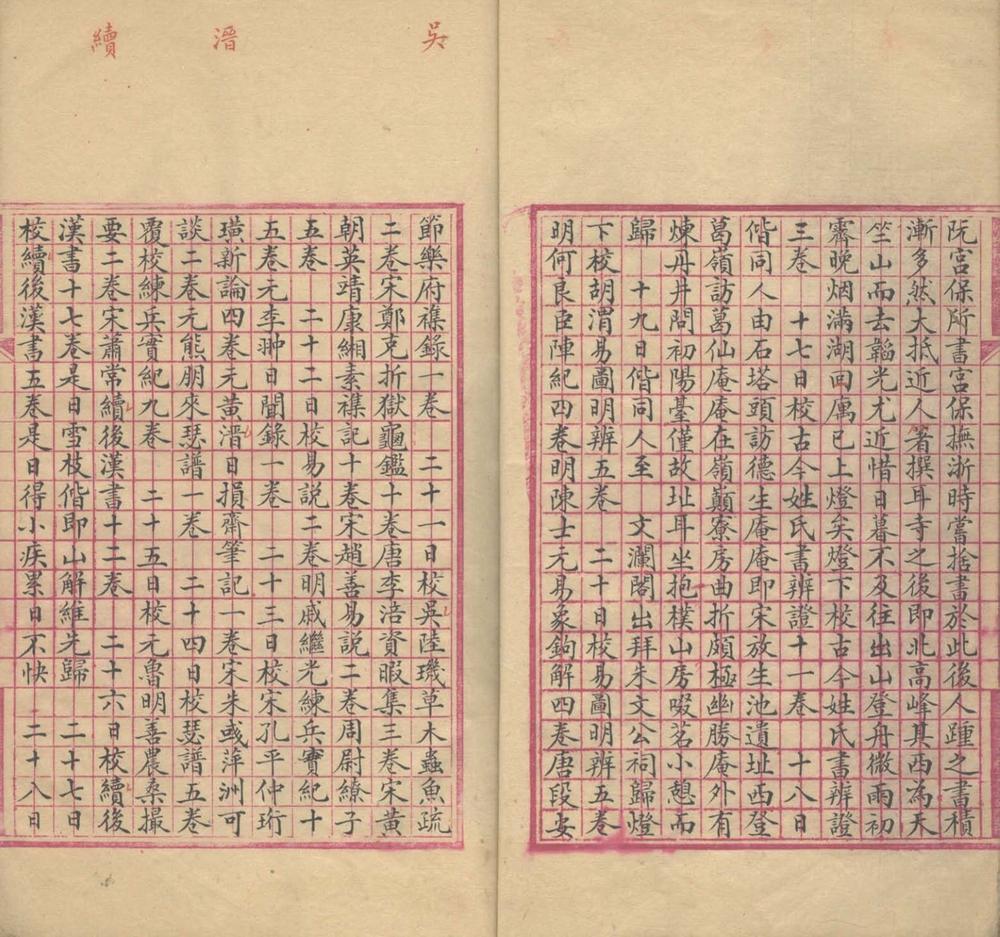 阮宮保所書宮保撫浙時嘗捨書於此後人踵之書積
漸多然大抵近人著撰耳寺之後即北高峰其西為天
竺山而去韜光尤近惜日暮不及往出山登舟微雨初
霽晚烟滿湖回寓已上燈矣燈下校古今姓氏書辨證
三卷　十七日校古今姓氏書辨證十一卷　十八日
偕同人由石塔頭訪德生庵庵即宋放生池遺址西登
葛嶺訪葛仙庵庵在嶺巔寮房曲折頗極幽勝庵外有
煉丹井問初陽臺僅故址耳坐抱樸山房啜茗小憩而
歸　十九日偕同人至　文瀾閣出拜朱文公祠歸燈
下校胡渭易圖明辨五卷　二十日校易圖明辨五卷
明何良臣陣紀四卷明陳士元易象鉤解四卷唐段安
吳
溍
續
節樂府襍錄一卷　二十一日校吳陸璣草木蟲魚疏
二卷宋鄭克折獄龜鑑十卷唐李涪資暇集三卷宋黃
朝英靖康緗素襍記十卷宋趙善易說二卷周尉繚子
五卷　二十二日校易說二卷明戚繼光練兵實紀十
五卷元李翀日聞錄一卷　二十三日校宋孔平仲珩
璜新論四卷元黃溍日損齋筆記一卷宋朱彧萍洲可
談二卷元熊朋來瑟譜一卷　二十四日校瑟譜五卷
覆校練兵實紀九卷　二十五日校元魯明善農桑撮
要二卷宋蕭常續後漢書十二卷　二十六日校續後
漢書十七卷是日雪枝偕即山解維先歸　二十七日
校續後漢書五卷是日得小疾累日不快　二十八日